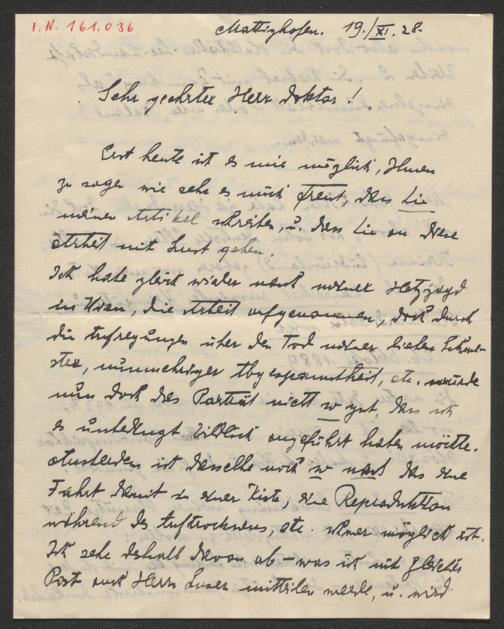 I.N. 161.036
Mattighofen. 19./XI. 28.
Sehr geehrter Herr Doktor!
Erst heute ist es mir möglich, Ihnen
zu sagen wie sehr es mich freut, dass Sie
meinen Artikel schreiben, u. dass Sie an diese
Arbeit mit Lust gehen.
Ich habe gleich wieder nach meiner Hetzjagd
in Wien, die Arbeit aufgenommen, doch durch
die Aufregungen über den Tod meiner lieben Schwe-
ster, nunmehriger Abgespanntheit, etc. wurde
nun doch das Porträt nicht so gut, dass ich
es unbedingt bildlich angeführt haben möchte.
Ausserdem ist dasselbe noch so nass das eine
Fahrt damit in einer Kiste, eine Reproduktion
während des Auftrocknens, etc. schwer möglich ist.
Ich sehe deshalb davon ab – was ich mit gleicher
Post auch Herrn Luser mitteilen werde, u. wird